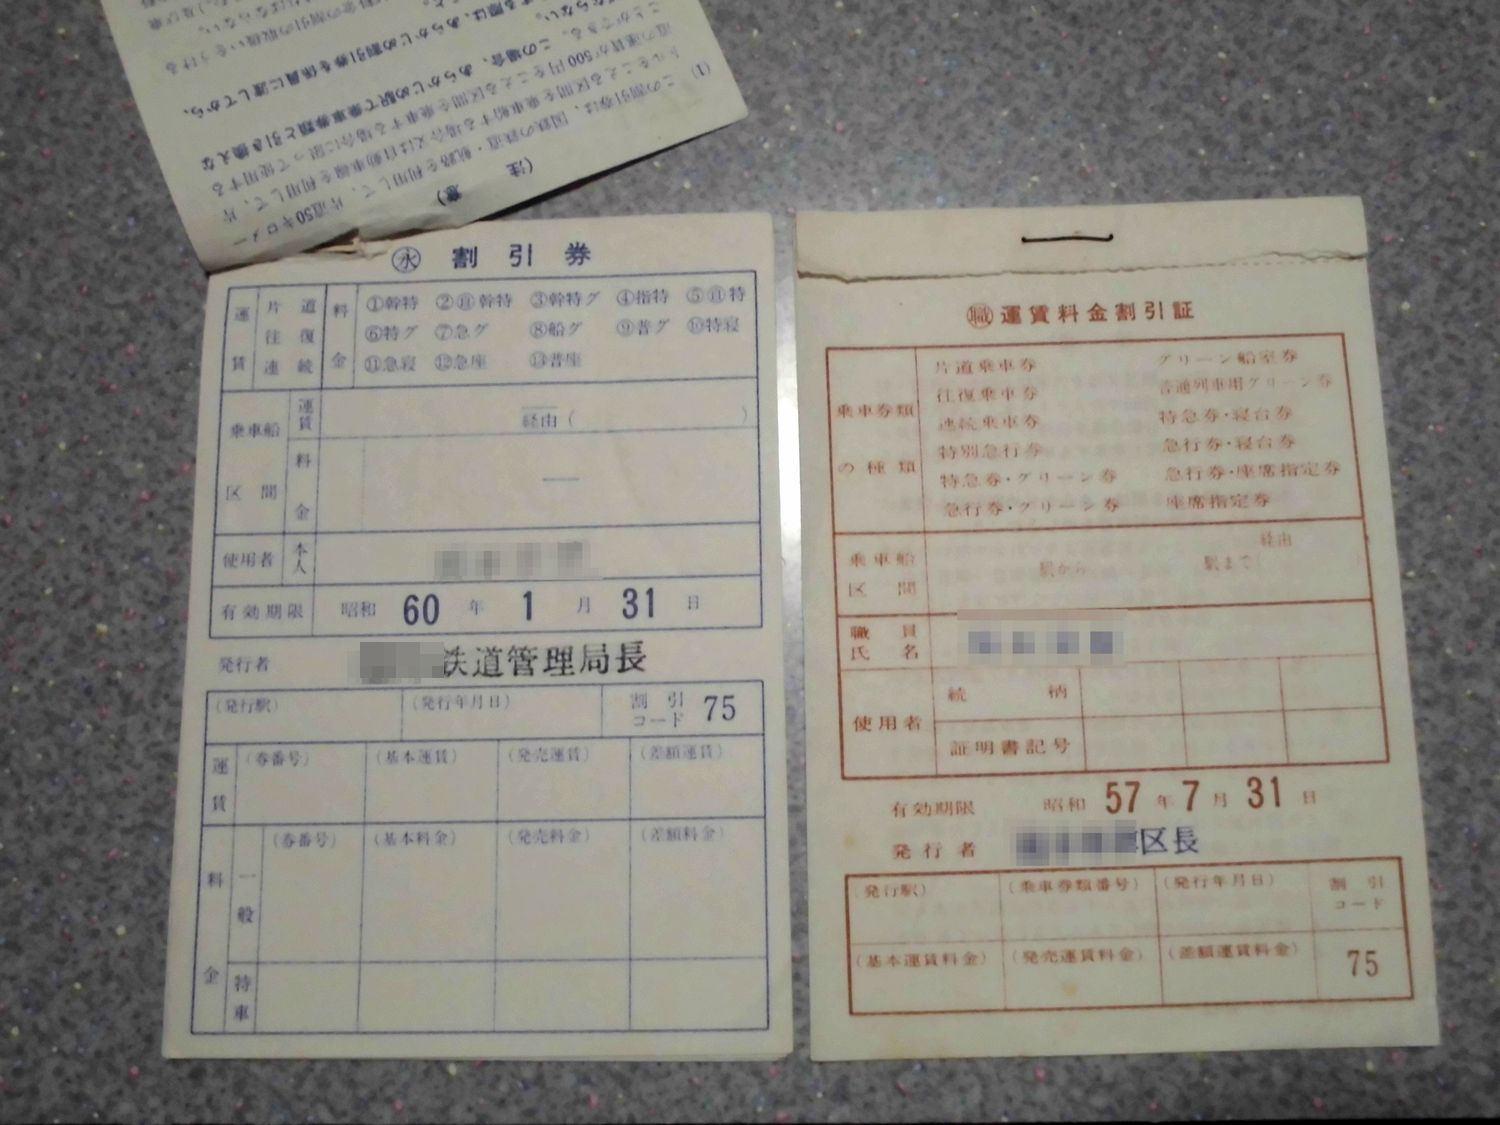 (注 意)
(1) この割引券は、国鉄の鉄道・航路を利用して、片道50キロメー
トルをこえる区間を乗車船する場合又は自動車線を利用して、片
道の運賃が500円をこえる区間を乗車する場合に限って使用する
ことができる。この場合、あらかじめ駅で乗車券類と引き換えな
ならない。
する際は、あらかじめ割引券を係員に渡してから、
㊌ 割引券
運賃 片道 往復 連続
料金 ①幹特 ②㊂幹特 ③幹特グ ④指特 ⑤㊂特
⑥特グ ⑦急グ ⑧船グ ⑨普グ ⑩特寝
⑪急寝 ⑫急座 ⑬普座
乗車船区間 運賃 経由( )
料金
使用者 本人
有効期限 昭和 60 年 1 月 31 日
発行者 鉄道管理局長
(発行駅) (発行年月日) 割引コード 75
運賃 (券番号) (基本運賃) (発売運賃) (差額運賃)
料金 一般 (券番号) (基本料金) (発売料金) (差額料金)
特車
㊩運賃料金割引証
乗車券類の種類
片道乗車券 グリーン船室券
往復乗車券 普通列車用グリーン券
連続乗車券 特急券・寝台券
特別急行券 急行券・寝台券
特急券・グリーン券 急行券・座席指定券
急行券・グリーン券 座席指定券
乗車船区間 駅から 駅まで( 経由 )
職員氏名
使用者 続柄
証明書記号
有効期限 昭和 57 年 7 月 31 日
発行者 区長
(発行駅) (乗車券類番号) (発行年月日) 割引コード
(基本運賃料金) (発売運賃料金) (差額運賃料金) 75